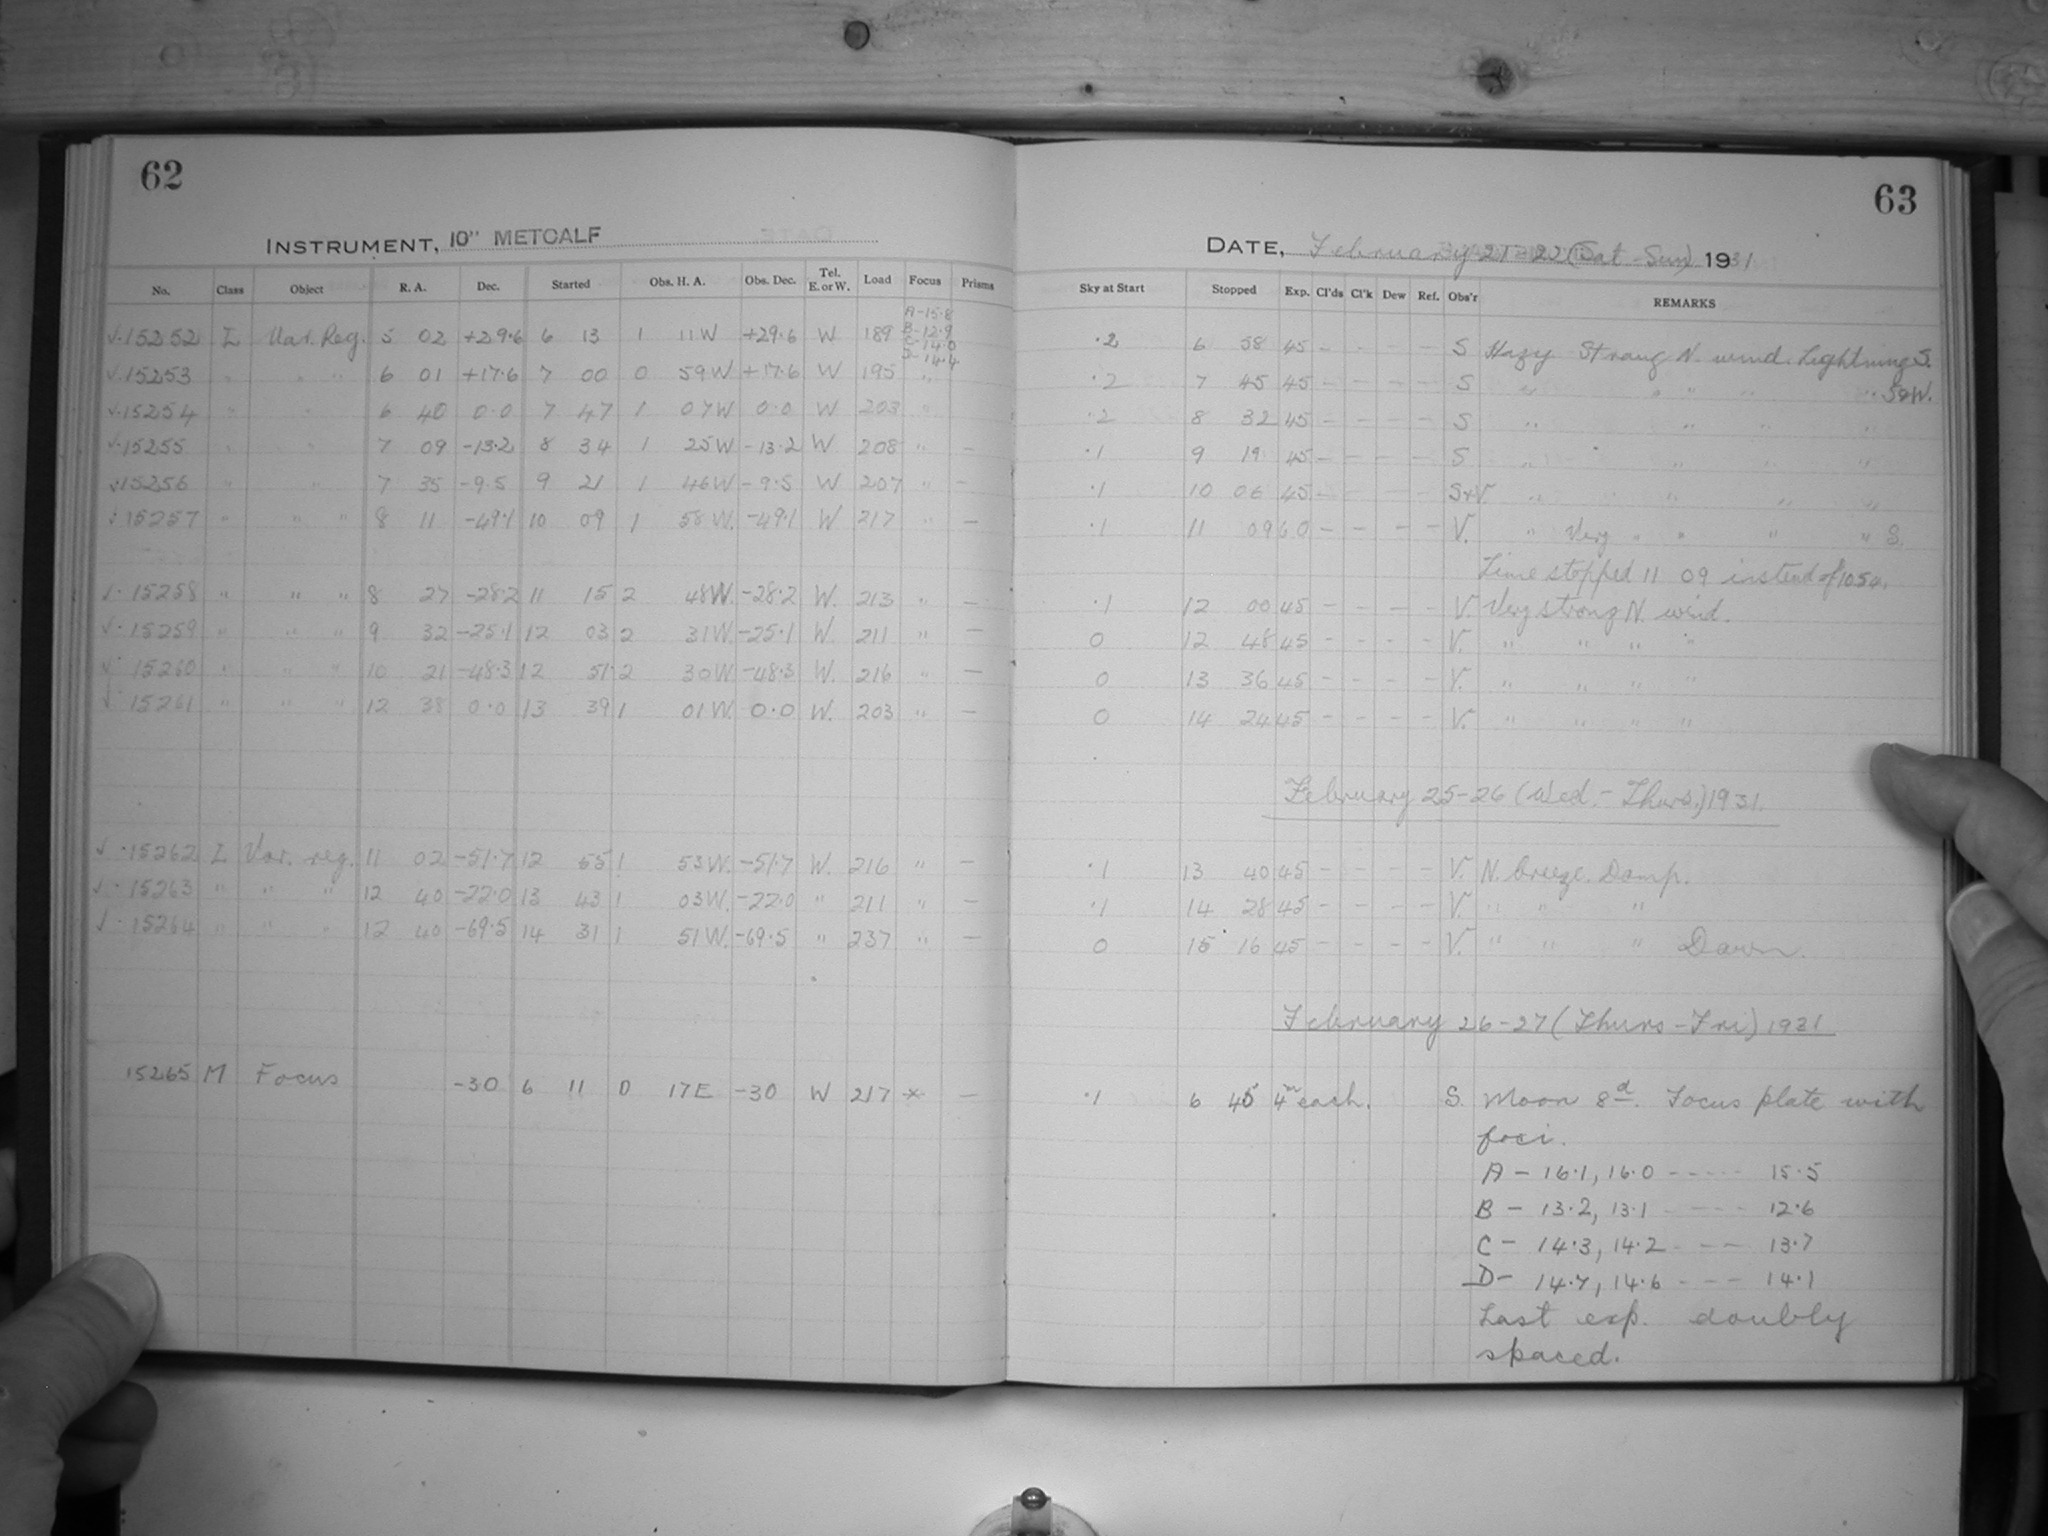 62
INSTRUMENT, 10" METCALF
No. Class Object R. A. Dec. Started Obs. H. A. Obs. Dec. Tel. E. or W. Load Focus Prisms
A-15.8
B-12.9
C-14.0
D-14.4
✓.15252 L Var. Reg. 5 02 +29.6 6 13 1 11 W +29.6 W 189
✓.15253 " " " 6 01 +17.6 7 00 0 59 W +17.6 W 195 "
✓.15254 " " 6 40 0.0 7 47 1 07 W 0.0 W 203 "
✓.15255 " " 7 09 -13.2 8 34 1 25 W -13.2 W 208 " —
✓.15256 " " 7 35 -9.5 9 21 1 46 W -9.5 W 207 " —
✓.15257 " " " 8 11 -49.1 10 09 1 58 W. -49.1 W 217 " —
✓.15258 " " " 8 27 -28.2 11 15 2 48 W. -28.2 W. 213 " —
✓.15259 " " " 9 32 -25.1 12 03 2 31 W. -25.1 W. 211 " —
✓.15260 " " " 10 21 -48.3 12 51 2 30 W -48.3 W. 216 " —
✓.15261 " " " 12 38 0.0 13 39 1 01 W. 0.0 W. 203 " —
✓.15262 L Var. reg. 11 02 -51.7 12 55 1 53 W. -51.7 W. 216 " —
✓.15263 " " " 12 40 -22.0 13 43 1 03 W. -22.0 " 211 " —
✓.15264 " " " 12 40 -69.5 14 31 1 51 W. -69.5 " 237 " —
15265 M Focus -30 6 11 0 17 E -30 W 217 * —
63
DATE, February 21-22 (Sat-Sun) 1931
Sky at Start Stopped Exp. Cl'ds Cl'k Dew Ref. Obs'r REMARKS
.2 6 58 45 - - - - S Hazy Strong N. wind. Lightning S.
.2 7 45 45 - - - - S " " " " " S&W.
.2 8 32 45 - - - - S " " " "
.1 9 19 45 - - - - S " " " " "
.1 10 06 45 - - - - S+V. " " " " "
.1 11 09 60 - - - - V. " Very " " " " S.
Time stopped 11 09 instead of 10 54.
.1 12 00 45 - - - - V. Very strong N. wind.
0 12 48 45 - - - - V. " " " "
0 13 36 45 - - - - V. " " " "
0 14 24 45 - - - - V. " " " "
February 25-26 (Wed.-Thurs.) 1931.
.1 13 40 45 - - - - V. N. breeze. Damp.
.1 14 28 45 - - - - V. " " "
0 15 16 45 - - - - V. " " " Dawn.
February 26-27 (Thurs-Fri) 1931
.1 6 45 4m each. S. Moon 8d. Focus plate with
foci.
A - 16.1, 16.0 ----- 15.5
B - 13.2, 13.1 ----- 12.6
C - 14.3, 14.2 --- 13.7
D - 14.7, 14.6 --- 14.1
Last exp. doubly
spaced.